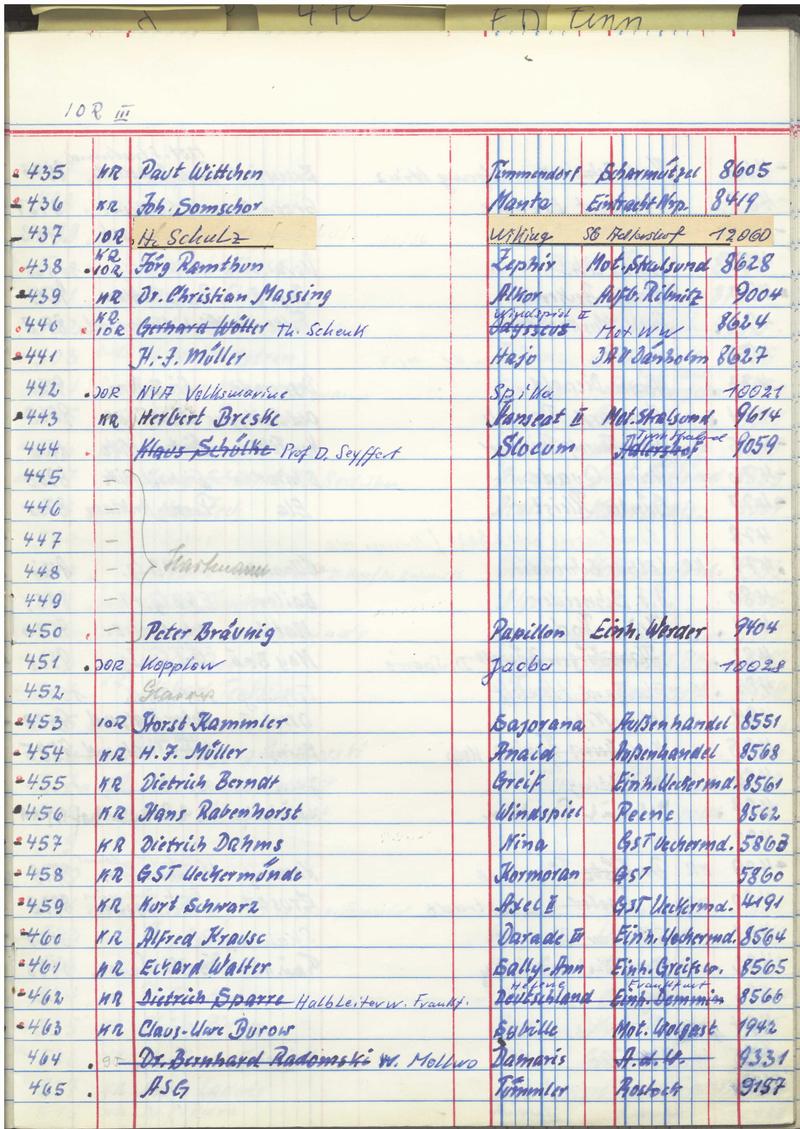 470 FD Tenn
10R III
435 KR Paul Wittchen Timmendorf Scharmützel 8605
436 KR Joh. Somschor Manta Eintracht Nrp. 8419
437 10R H. Schulz Wiking SG Adlershof 12060
438 KR 10R Jörg Ramthun Zephir Mot. Stralsund 8628
439 KR Dr. Christian Massing Alkor Aufb. Ribnitz 9004
440 KR 10R Gerhard Wöller Th. Schenk Odysseus Windspiel II Mot. WW 8624
441 H.-J. Müller Hajo Dänholm 8627
442 10R NVA Volksmarine Spika 10021
443 KR Herbert Breske Hanseat II Mot. Stralsund 9614
444 Klaus Schülke Prof D. Seyffert Slocum Adlershof 9059
445 –
446 –
447 –
448 – Hartmann
449 –
450 – Peter Bräunig Papillon Einh. Werder 9404
451 10R Kopplow Jacba 10028
452
453 10R Horst Kammler Bajorana Außenhandel 8551
454 KR H. J. Müller Anaid Außenhandel 8568
455 KR Dietrich Berndt Greif Einh. Ueckermd. 8561
456 KR Hans Rabenhorst Windspiel Peene 8562
457 KR Dietrich Dahms Nina GST Ueckermd. 5863
458 KR GST Ueckermünde Kormoran GST 5860
459 KR Kurt Schwarz Axel I GST Ueckermd. 4191
460 KR Alfred Krause Darade III Einh. Ueckermd. 8564
461 KR Eckard Walter Sally-Ann Einh. Greifsw. 8565
462 KR Dietrich Sparre Halbleiterw. Frankf. Deutschland Helene Einh. Demmin Frankfurt 8566
463 KR Claus-Uwe Burow Sybille Mot. Wolgast 1942
464 Dr. Bernhard Radomski W. Mollwo Damaris A.d.W. 9331
465 ASG Tümmler Rostock 9197